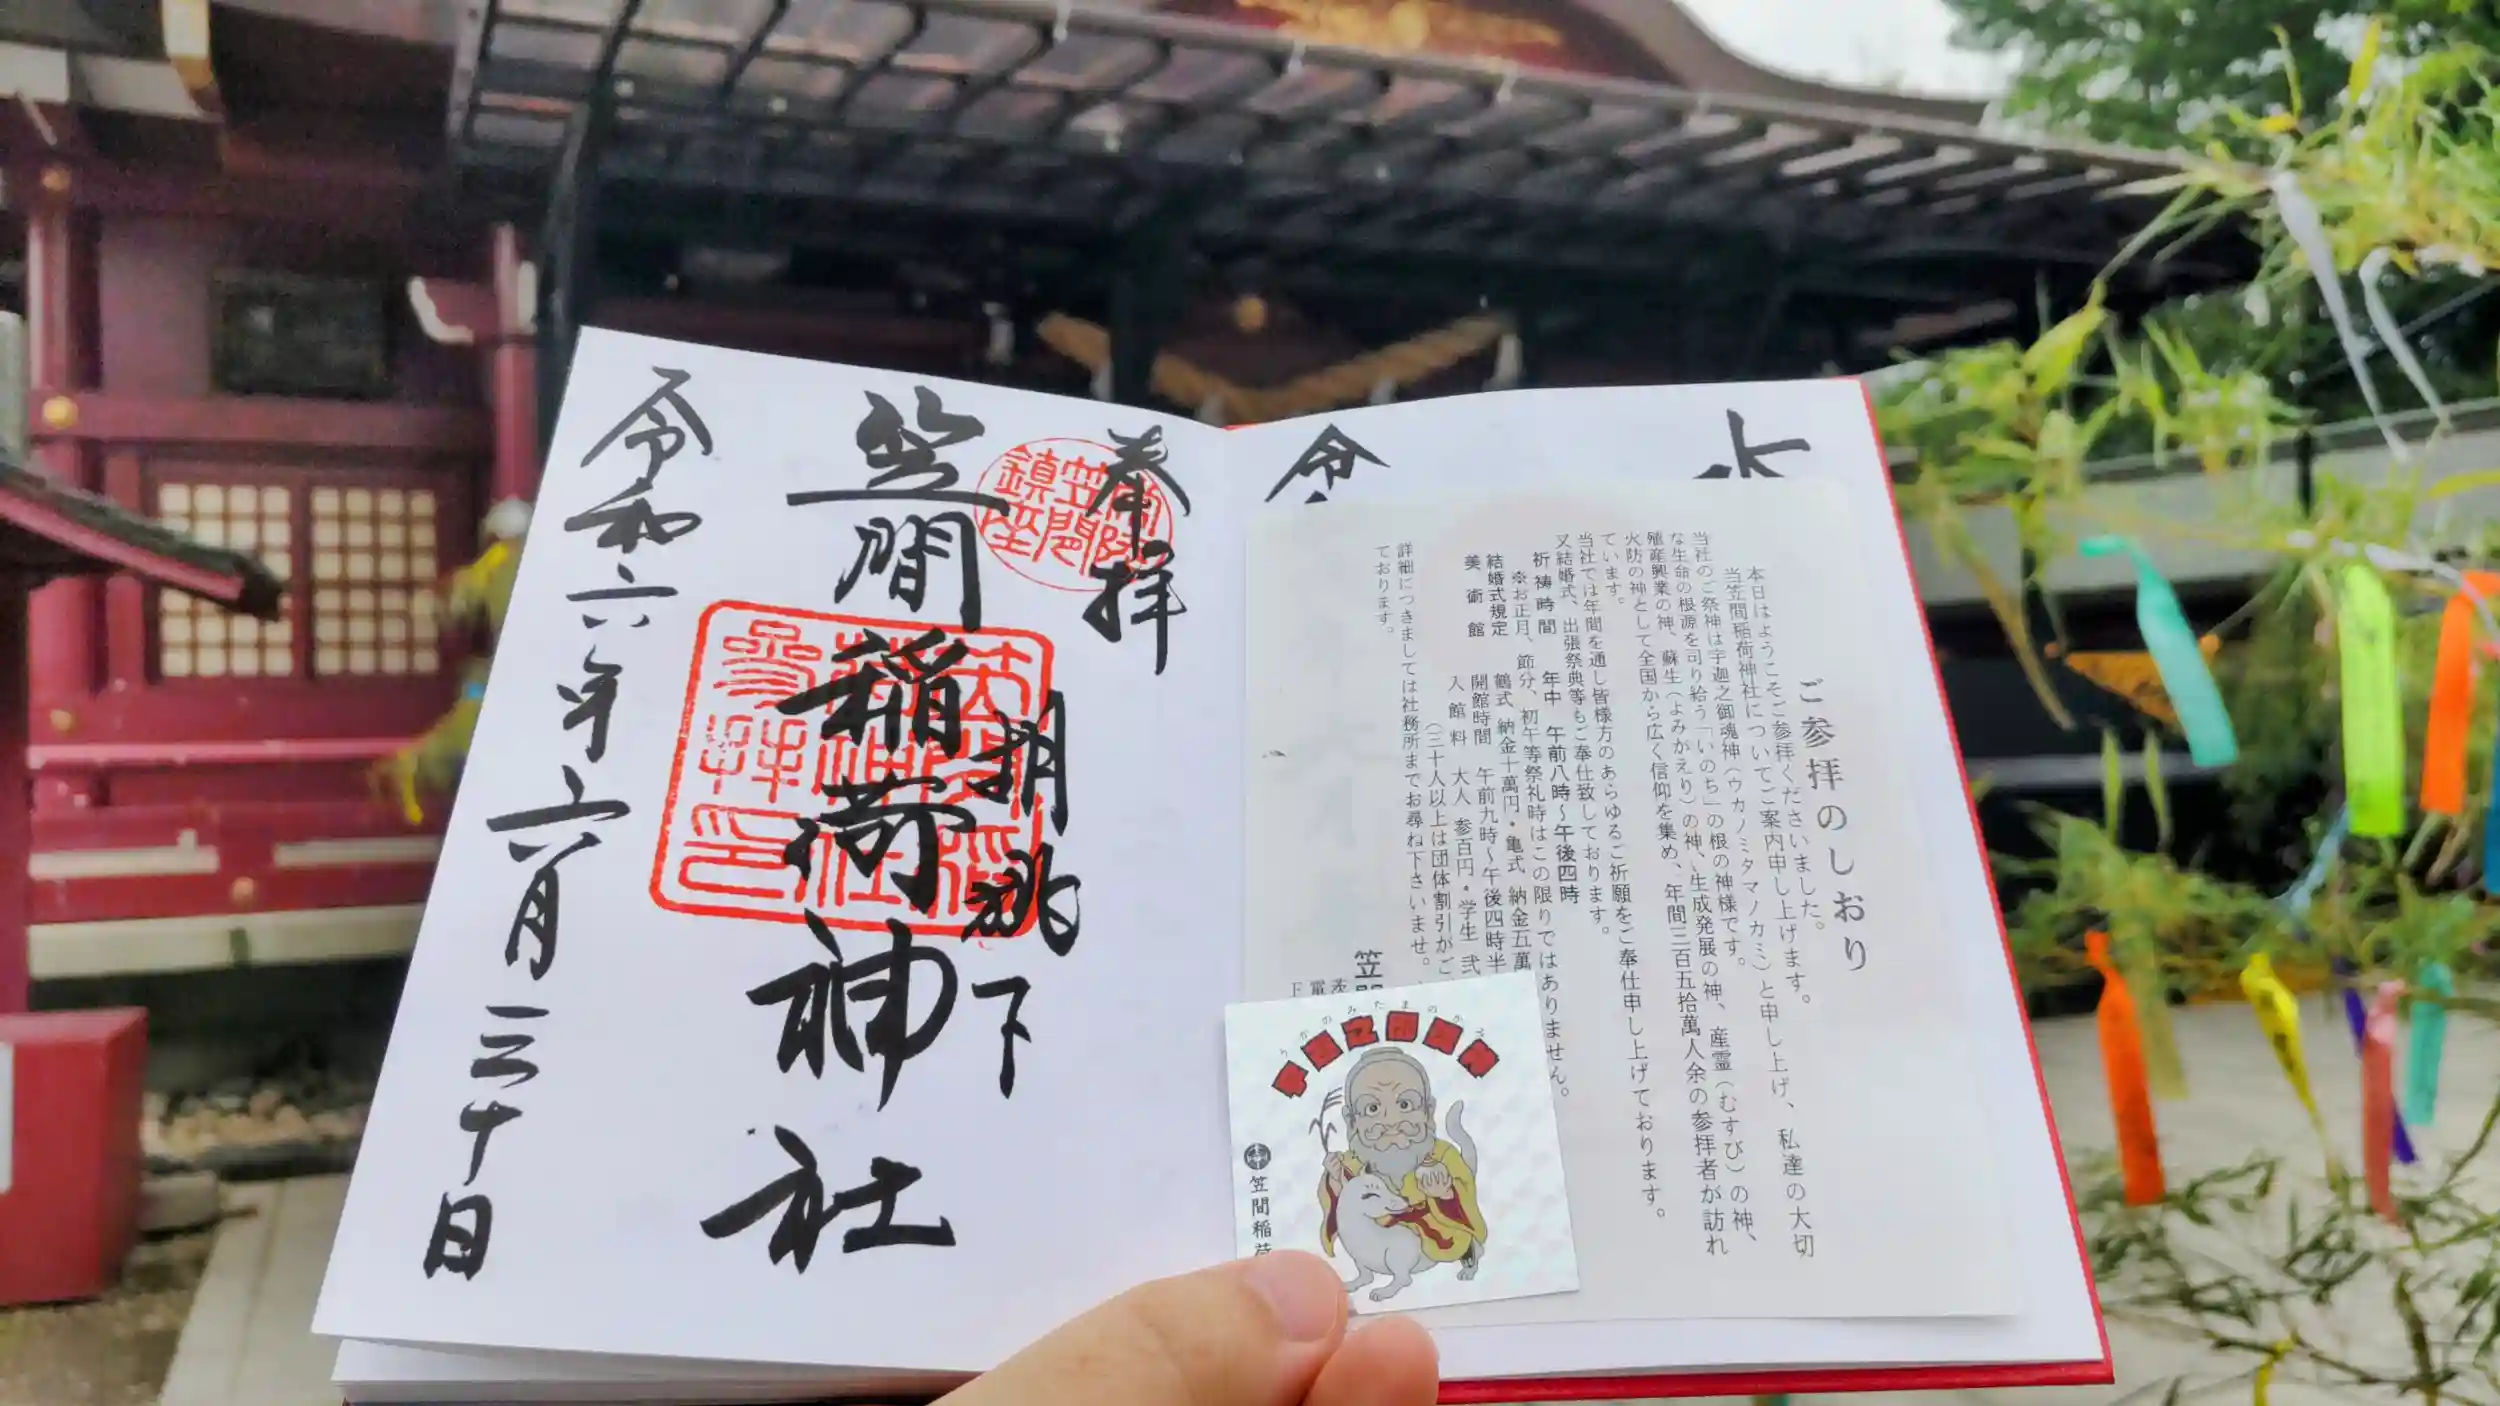 ご参拝のしおり
本日はようこそご参拝くださいました。
当笠間稲荷神社についてご案内申し上げます。
当社のご祭神は宇迦之御魂神(ウカノミタマノカミ)と申し上げ、私達の大切
な生命の根源を司り給う「いのち」の根の神様です。
殖産興業の神、蘇生(よみがえり)の神、生成発展の神、産霊(むすび)の神、
火防の神として全国から広く信仰を集め、年間三百五拾萬人余の参拝者が訪れ
ています。
当社では年間を通し皆様方のあらゆるご祈願をご奉仕申し上げております。
又結婚式、出張祭典等もご奉仕致しております。
祈祷時間 年中 午前八時〜午後四時
※お正月、節分、初午等祭礼時はこの限りではありません。
結婚式規定 鶴式 納金十萬円・亀式 納金五萬
美術館 開館時間 午前九時〜午後四時半
入館料 大人 参百円・学生 弐
(三十人以上は団体割引がご
詳細につきましては社務所までお尋ね下さいませ。
ております。
宇迦之御魂神
うかのみたまのか
笠間稲荷
令
奉拝
常陸
笠間
鎮座
胡桃下
笠間稲荷神社
令和六年六月三十日